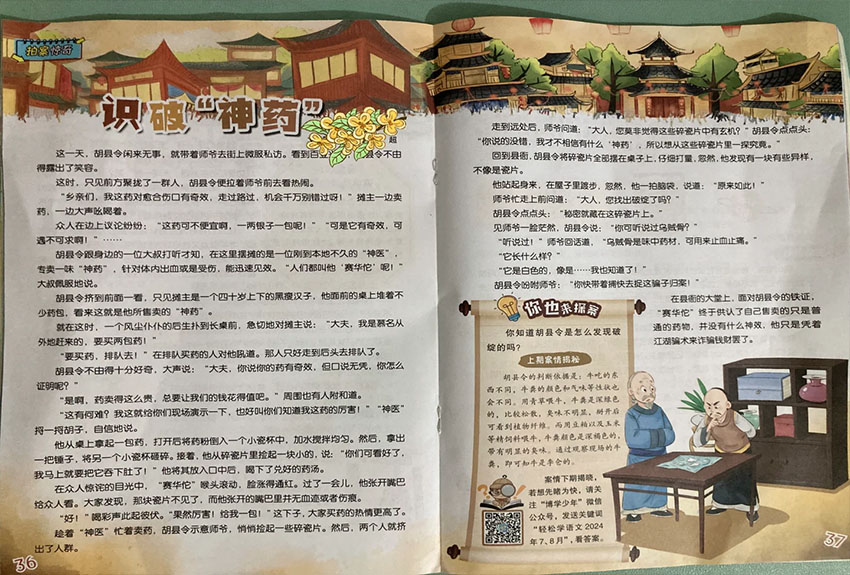 拍案惊奇
识破“神药”
超
这一天，胡县令闲来无事，就带着师爷去街上微服私访。看到百
县令不由
得露出了笑容。
这时，只见前方聚拢了一群人，胡县令便拉着师爷前去看热闹。
“乡亲们，我这药对愈合伤口有奇效，走过路过，机会千万别错过呀！”摊主一边卖
药，一边大声吆喝着。
众人在边上议论纷纷：“这药可不便宜啊，一两银子一包呢！”“可是它有奇效，可
遇不可求啊！”……
胡县令跟身边的一位大叔打听才知，在这里摆摊的是一位刚到本地不久的“神医”，
专卖一味“神药”，针对体内出血或是受伤，能迅速见效。“人们都叫他‘赛华佗’呢！”
大叔佩服地说。
胡县令挤到前面一看，只见摊主是一个四十岁上下的黑瘦汉子，他面前的桌上堆着不
少药包，看来这就是他所售卖的“神药”。
就在这时，一个风尘仆仆的后生扑到长桌前，急切地对摊主说：“大夫，我是慕名从
外地赶来的，要买两包药！”
“要买药，排队去！”在排队买药的人对他吼道。那人只好走到后头去排队了。
胡县令不由得十分好奇，大声说：“大夫，你说你的药有奇效，但口说无凭，你怎么
证明呢？”
“是啊，药卖得这么贵，总要让我们的钱花得值吧。”周围也有人附和道。
“这有何难？我这就给你们现场演示一下，也好叫你们知道我这药的厉害！”“神医”
捋一捋胡子，自信地说。
他从桌上拿起一包药，打开后将药粉倒入一个小瓷杯中，加水搅拌均匀。然后，拿出
一把锤子，将另一个小瓷杯砸碎。接着，他从碎瓷片里捡起一块小的，说：“你们可看好了，
我马上就要把它吞下肚了！”他将其放入口中后，喝下了兑好的药汤。
在众人惊诧的目光中，“赛华佗”喉头滚动，脸涨得通红。过了一会儿，他张开嘴巴
给众人看。大家发现，那块瓷片不见了，而他张开的嘴巴里并无血迹或者伤痕。
“好！”喝彩声此起彼伏。“果然厉害！给我一包！”这下子，大家买药的热情更高了。
趁着“神医”忙着卖药，胡县令示意师爷，悄悄捡起一些碎瓷片。然后，两个人就挤
出了人群。
36
走到远处后，师爷问道：“大人，您莫非觉得这些碎瓷片中有玄机？”胡县令点点头：
“你说的没错，我才不相信有什么‘神药’，所以想从这些碎瓷片里一探究竟。”
回到县衙，胡县令将碎瓷片全部摆在桌子上，仔细打量，忽然，他发现有一块有些异样，
不像是瓷片。
他站起身来，在屋子里踱步，忽然，他一拍脑袋，说道：“原来如此！”
师爷忙走上前问道：“大人，您找出破绽了吗？”
胡县令点点头：“秘密就藏在这碎瓷片上。”
见师爷一脸茫然，胡县令说：“你可听说过乌贼骨？”
“听说过！”师爷回话道，“乌贼骨是味中药材，可用来止血止痛。”
“它长什么样？”
“它是白色的，像是……我也知道了！”
胡县令吩咐师爷：“你快带着捕快去捉这骗子归案！”
在县衙的大堂上，面对胡县令的铁证，
“赛华佗”终于供认了自己售卖的只是普
通的药物，并没有什么神效，他只是凭着
江湖骗术来诈骗钱财罢了。
你也来探案
你知道胡县令是怎么发现破
绽的吗？
上期案情揭秘
胡县令的判断依据是：牛吃的东
西不同，牛粪的颜色和气味等性状也
会不同。用青草喂牛，牛粪是深绿色
的，比较松散，臭味不明显，掰开后
可看到植物纤维。而用豆粕以及玉米
等精饲料喂牛，牛粪颜色是深褐色的，
带有明显的臭味，通过观察现场的牛
粪，即可知牛是李仓的。
案情下期揭晓，
若想先睹为快，请关
注“博学少年”微信
公众号，发送关键词
“轻松学语文2024
年7、8月”，看答案。
37